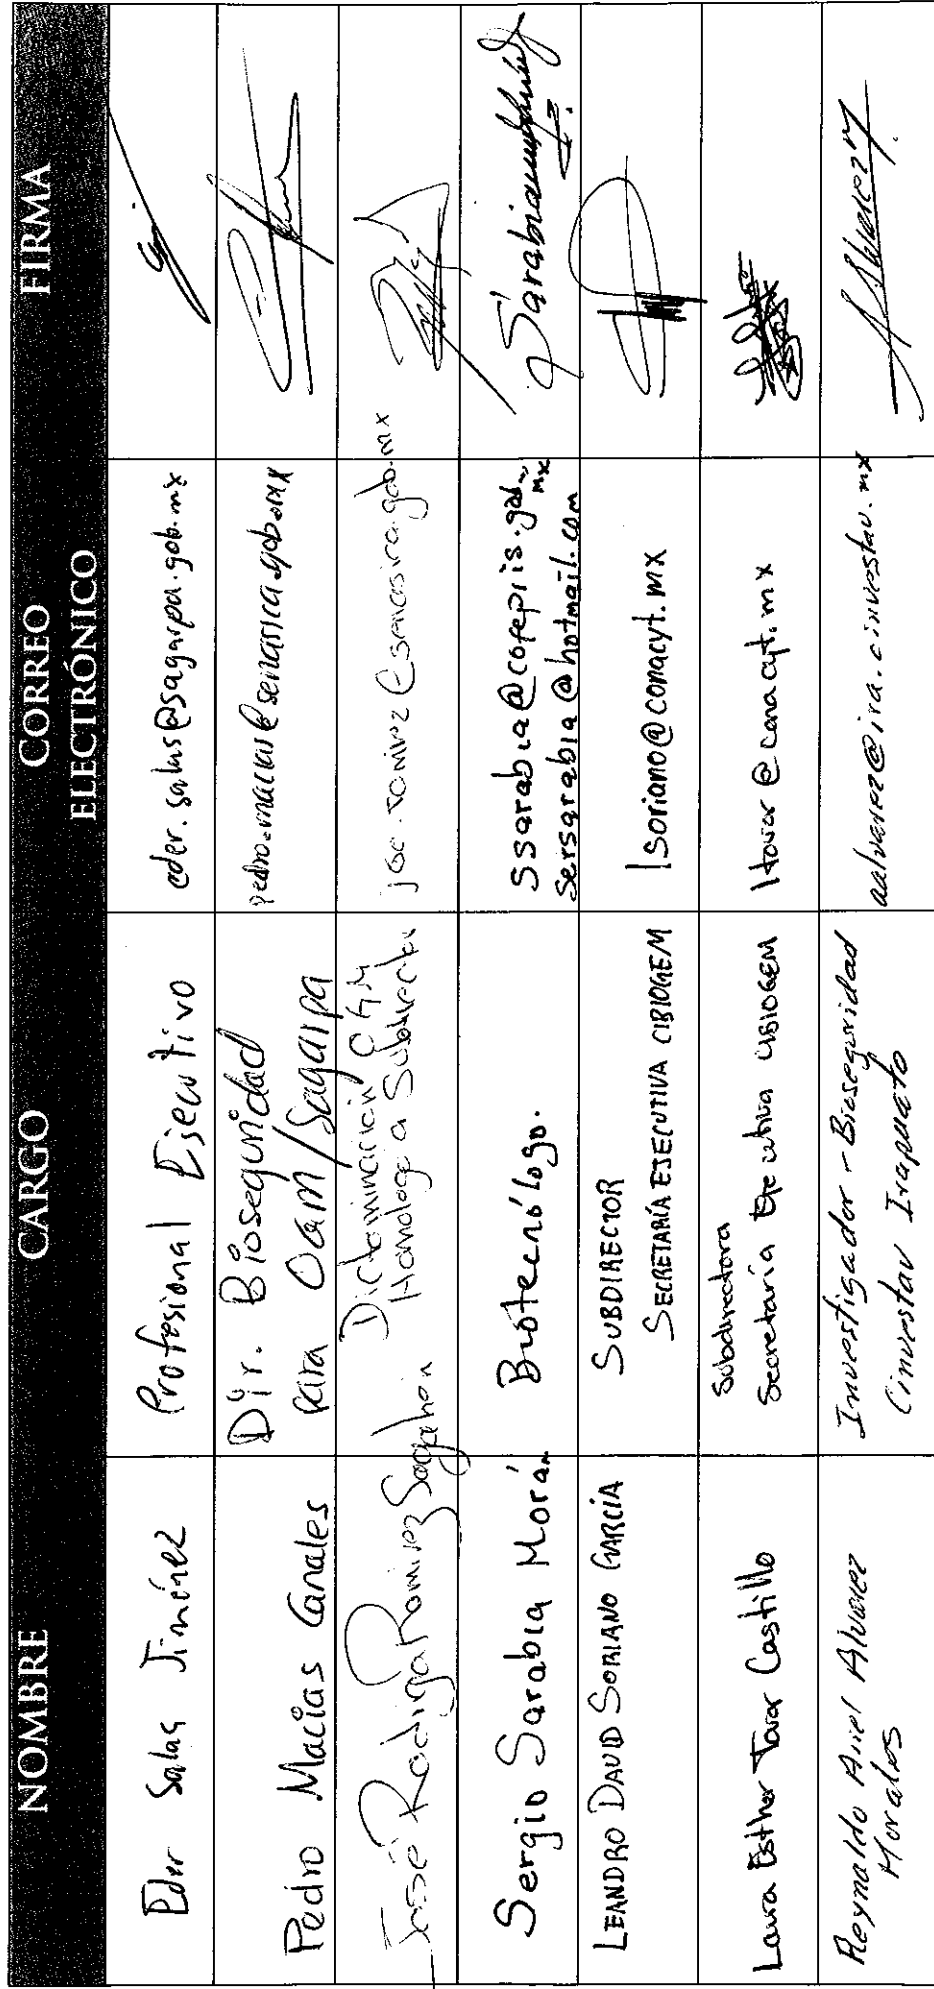 NOMBRE CARGO CORREO ELECTRÓNICO FIRMA
Eder Salas Jiménez Profesional Ejecutivo eder.salas@sagarpa.gob.mx
Pedro Macías Canales Dir. Bioseguridad
para OGM/Sagarpa pedro.macias@senasica.gob.mx
José Rodrigo Ramírez Dictaminación OGM
Homologa a Subdirector jose.ramirez@senasica.gob.mx
Sergio Sarabia Morán Biotecnólogo. ssarabia@cofepris.gob.mx
sersarabia@hotmail.com Sarabia
LEANDRO DAVID SORIANO GARCÍA SUBDIRECTOR
SECRETARÍA EJECUTIVA CIBIOGEM lsoriano@conacyt.mx
Laura Esther Tovar Castillo Subdirectora
Secretaría Ejecutiva CIBIOGEM ltovar@conacyt.mx
Reynaldo Ariel Alvarez
Morales Investigador - Bioseguridad
Cinvestav Irapuato aalvarez@ira.cinvestav.mx